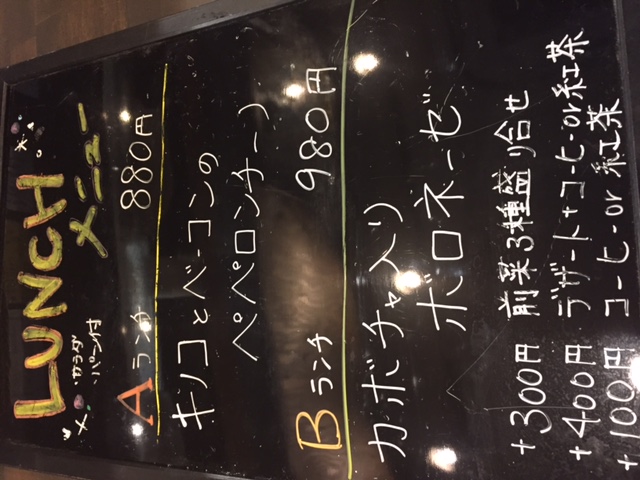 LUNCH
メニュー
・サラダ
・パン付
Aランチ 880円
キノコとベーコンの
ペペロンチーノ
Bランチ 980円
カボチャ入り
ボロネーゼ
+300円 前菜3種盛り合せ
+400円 デザート+コーヒーor紅茶
+100円 コーヒーor紅茶